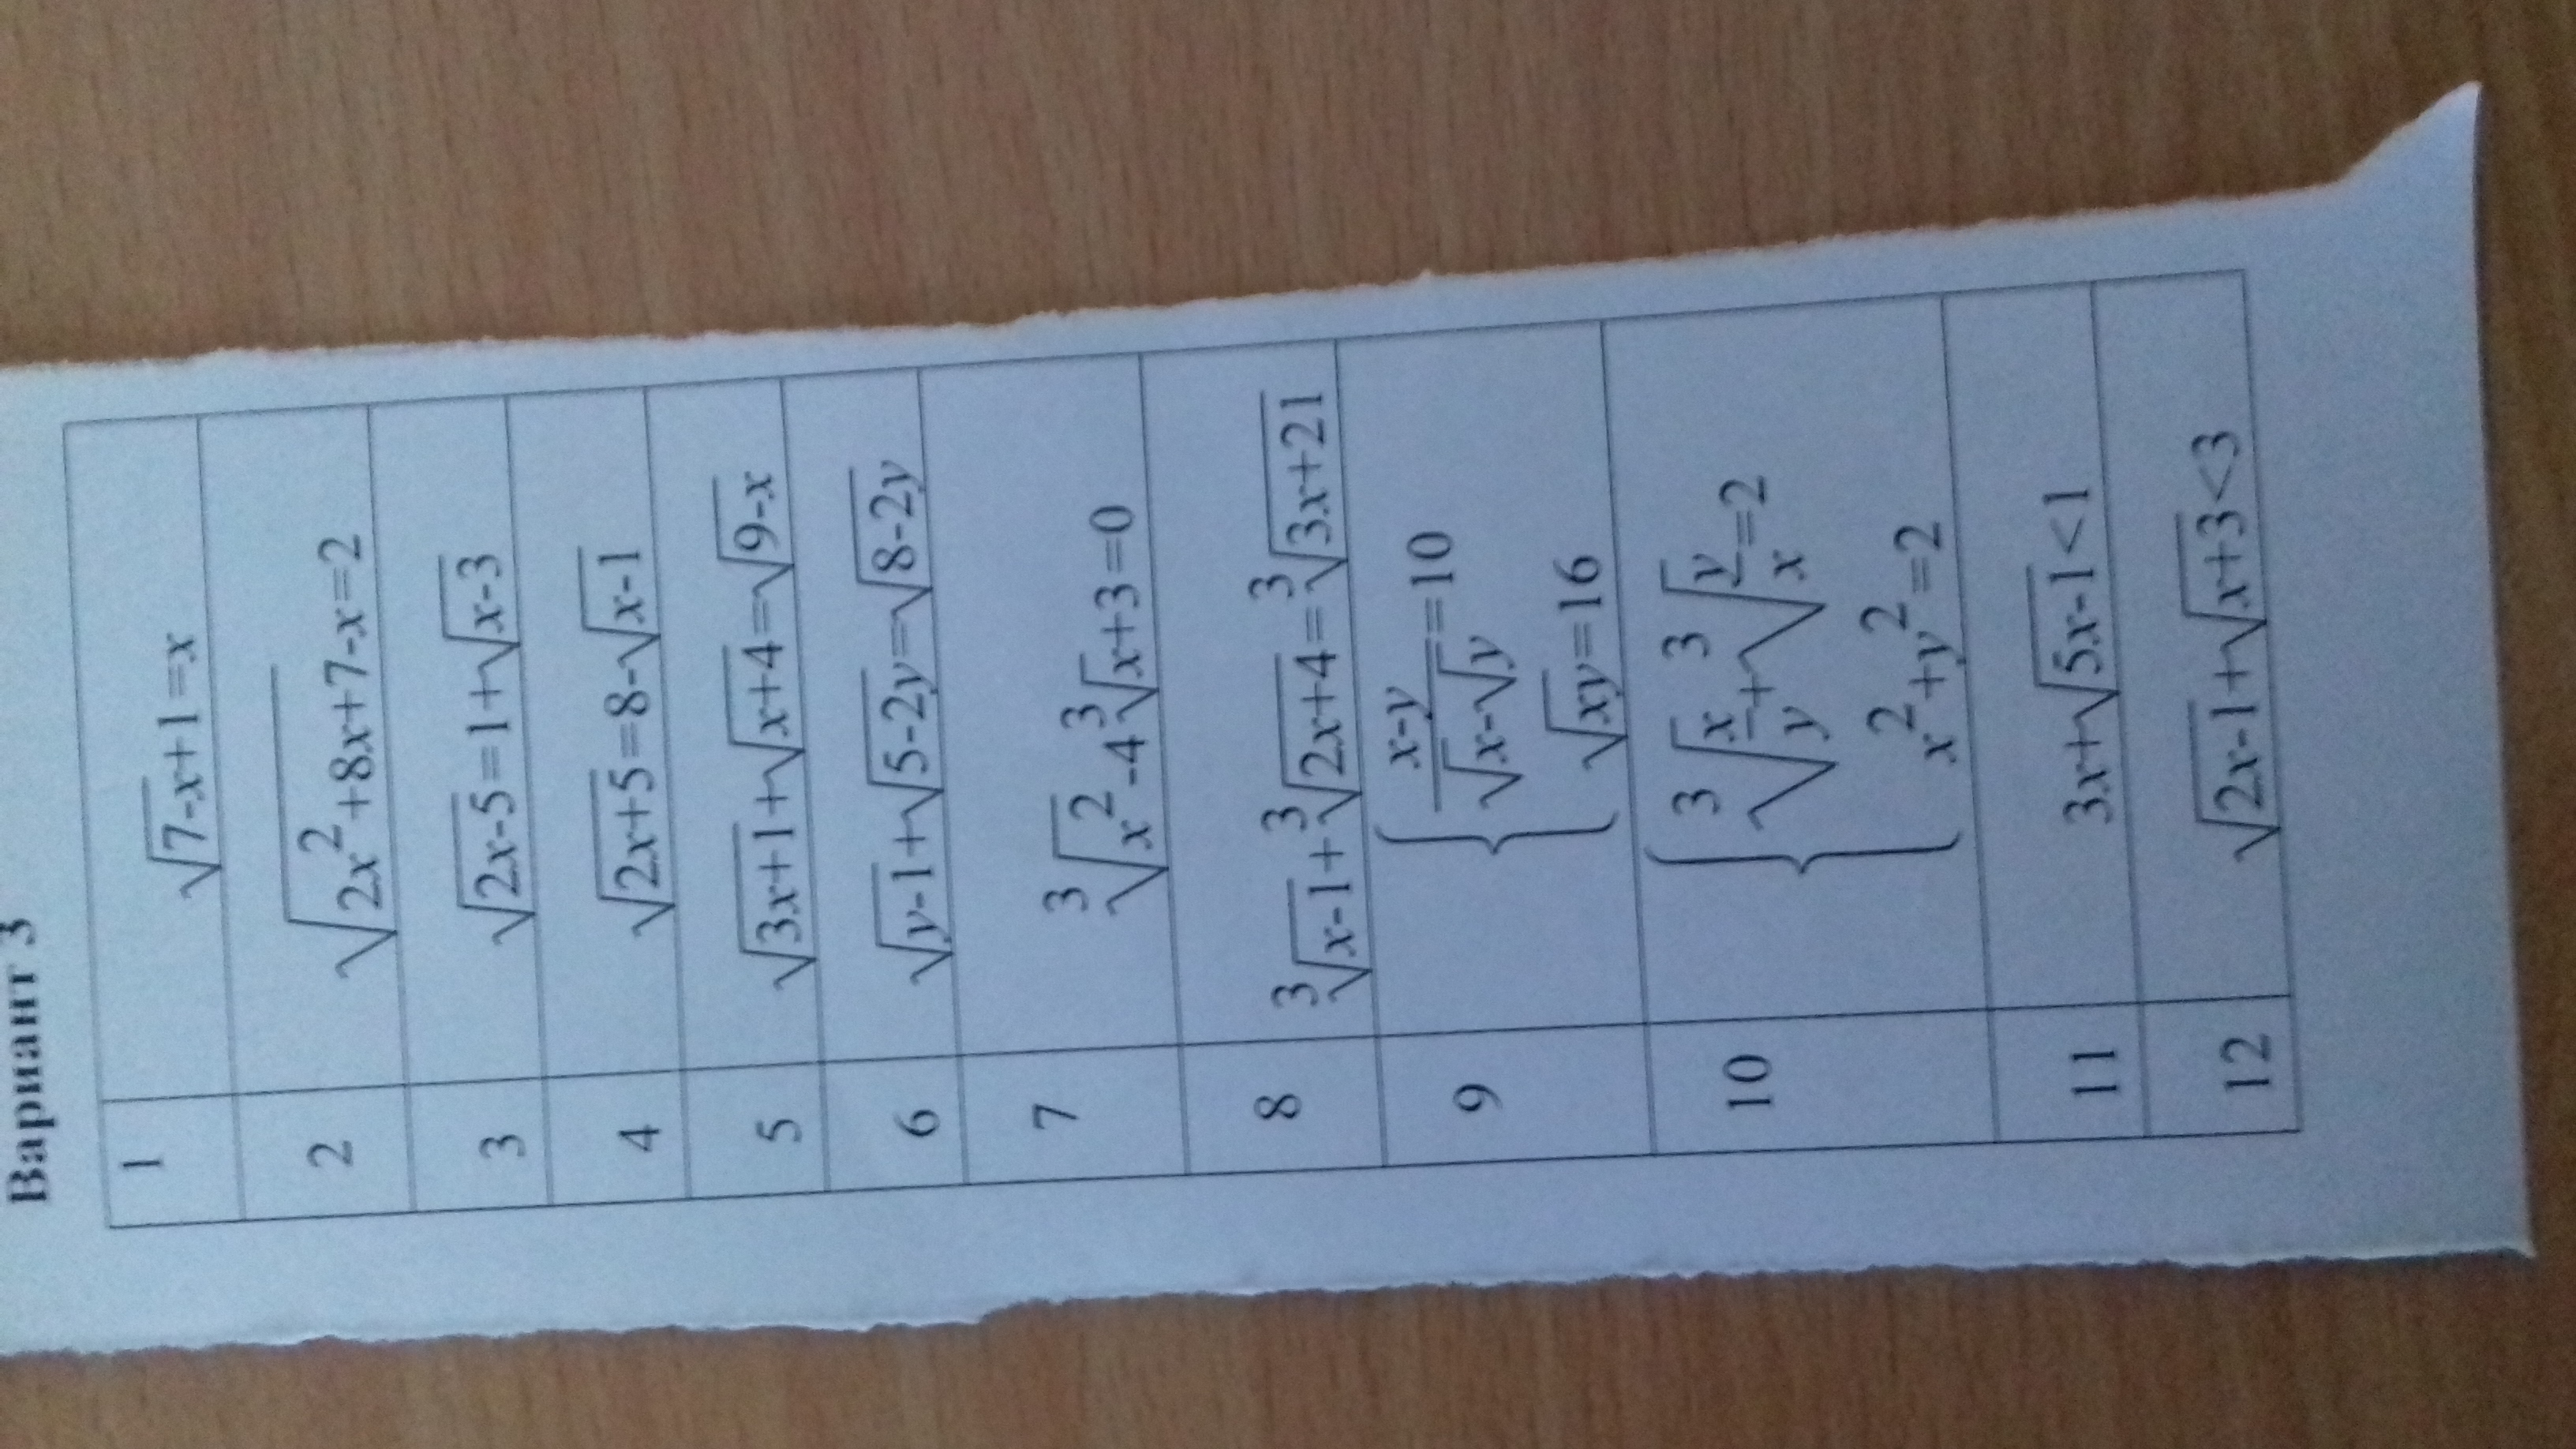 Вариант 3
1
√7-x+1=x
2
√2x²+8x+7-x=2
3
√2x-5=1+√x-3
4
√2x+5=8-√x-1
5
√3x+1+√x+4=√9-x
6
√y-1+√5-2y=√8-2y
7
³√x²-4³√x+3=0
8
³√x-1+³√2x+4=³√3x+21
9
x-y
√x-√y
=10
√xy=16
10
³√x/y+³√y/x=2
x²+y²=2
11
3x+√5x-1<1
12
√2x-1+√x+3<3